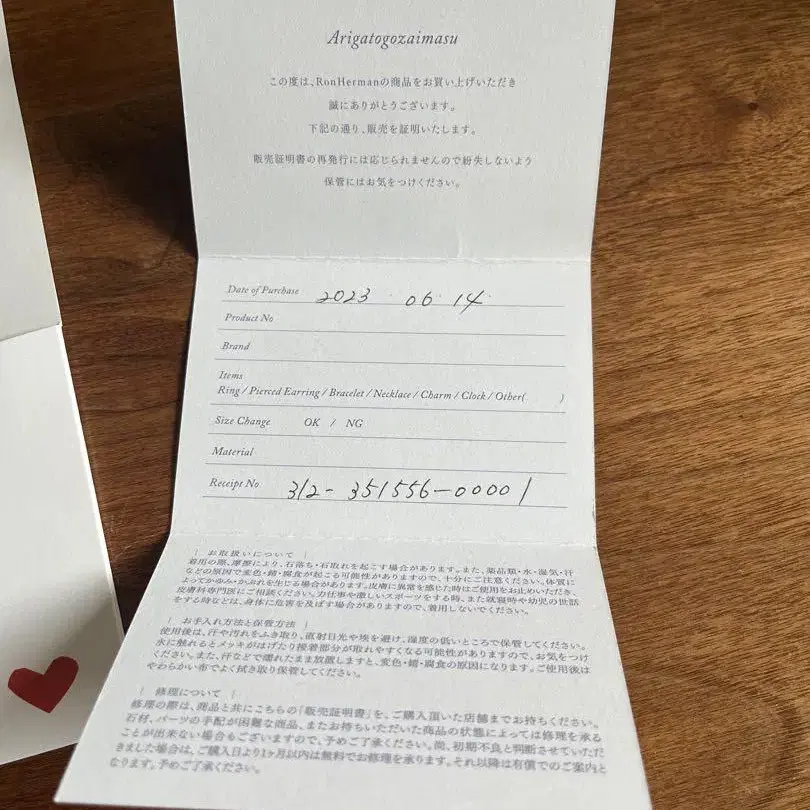 Arigatogozaimasu
この度は、RonHermanの商品をお買い上げいただき
誠にありがとうございます。
下記の通り、販売を証明いたします。
販売証明書の再発行には応じられませんので紛失しないよう
保管にはお気をつけください。
Date of Purchase 2023 06 14
Product No
Brand
Items
Ring / Pierced Earring / Bracelet / Necklace / Charm / Clock / Other( )
Size Change OK / NG
Material
Receipt No 312-351556-00001
| お取扱いについて |
着用の際、摩擦により、石落ち・石取れを起こす場合があります。また、薬品類・水・湿気・汗
などの原因で変色・錆・腐食が起こる可能性がありますので、十分にご注意ください。体質に
よってかゆみ・かぶれを生じる場合があります。皮膚に異常を感じた時はご使用をお止めいただき、
皮膚科専門医にご相談ください。力仕事や激しいスポーツをする時、また就寝時や幼児の世話
をする時などは、身体に危害を及ぼす場合がありますので、着用しないでください。
| お手入れ方法と保管方法 |
使用後は、汗や汚れをふき取り、直射日光や埃を避け、湿度の低いところで保管してください。
水に触れるとメッキがはげたり接着部分が取れやすくなる可能性がありますので、お気をつけ
ください。また、汗などで濡れたまま放置しますと、変色・錆・腐食の原因になります。ご使用後は
やわらかい布でよく拭き取り保管してください。
| 修理について |
修理の際は、商品と共にこちらの「販売証明書」を、ご購入頂いた店舗までお持ちください。
石材、パーツの手配が困難な商品、またお持ちいただいた商品の状態によっては修理を承る
ことが出来ない場合もございますので、予めご了承ください。尚、初期不良と判断させていただ
きました場合は、ご購入日より1ヶ月以内は無料でお修理を承ります。それ以降は有償でのご案内と
なります。予めご了承ください。